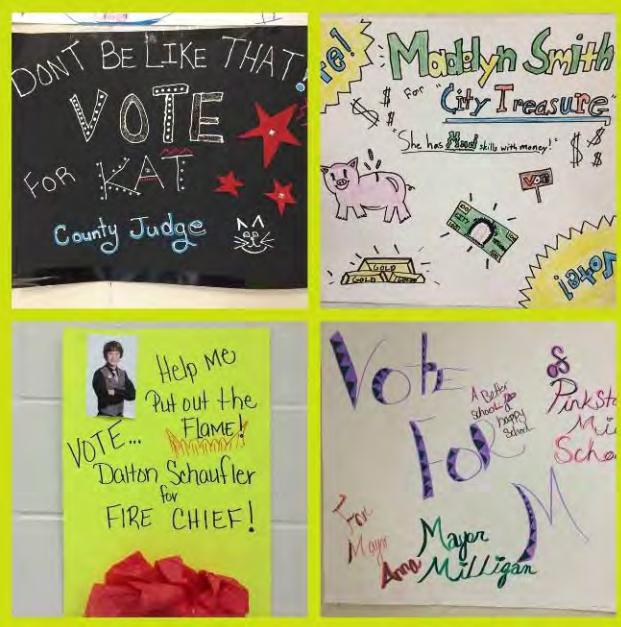 DONT BE LIKE THAT!
VOTE
FOR KAT
County Judge
Madelyn Smith
For "City Treasure"
"She has Mad skills with money!"
VOTE
CITY
GOLD
GOLD
Vote!
Help Me
Put out the
FLAME!
VOTE...
Dalton Schaufler
for
FIRE CHIEF!
Vote
A Better
school &
happy
School
For
M
of
Pinksto
Mi
Scho
For
Mayor
Mayor
Anna Milligan